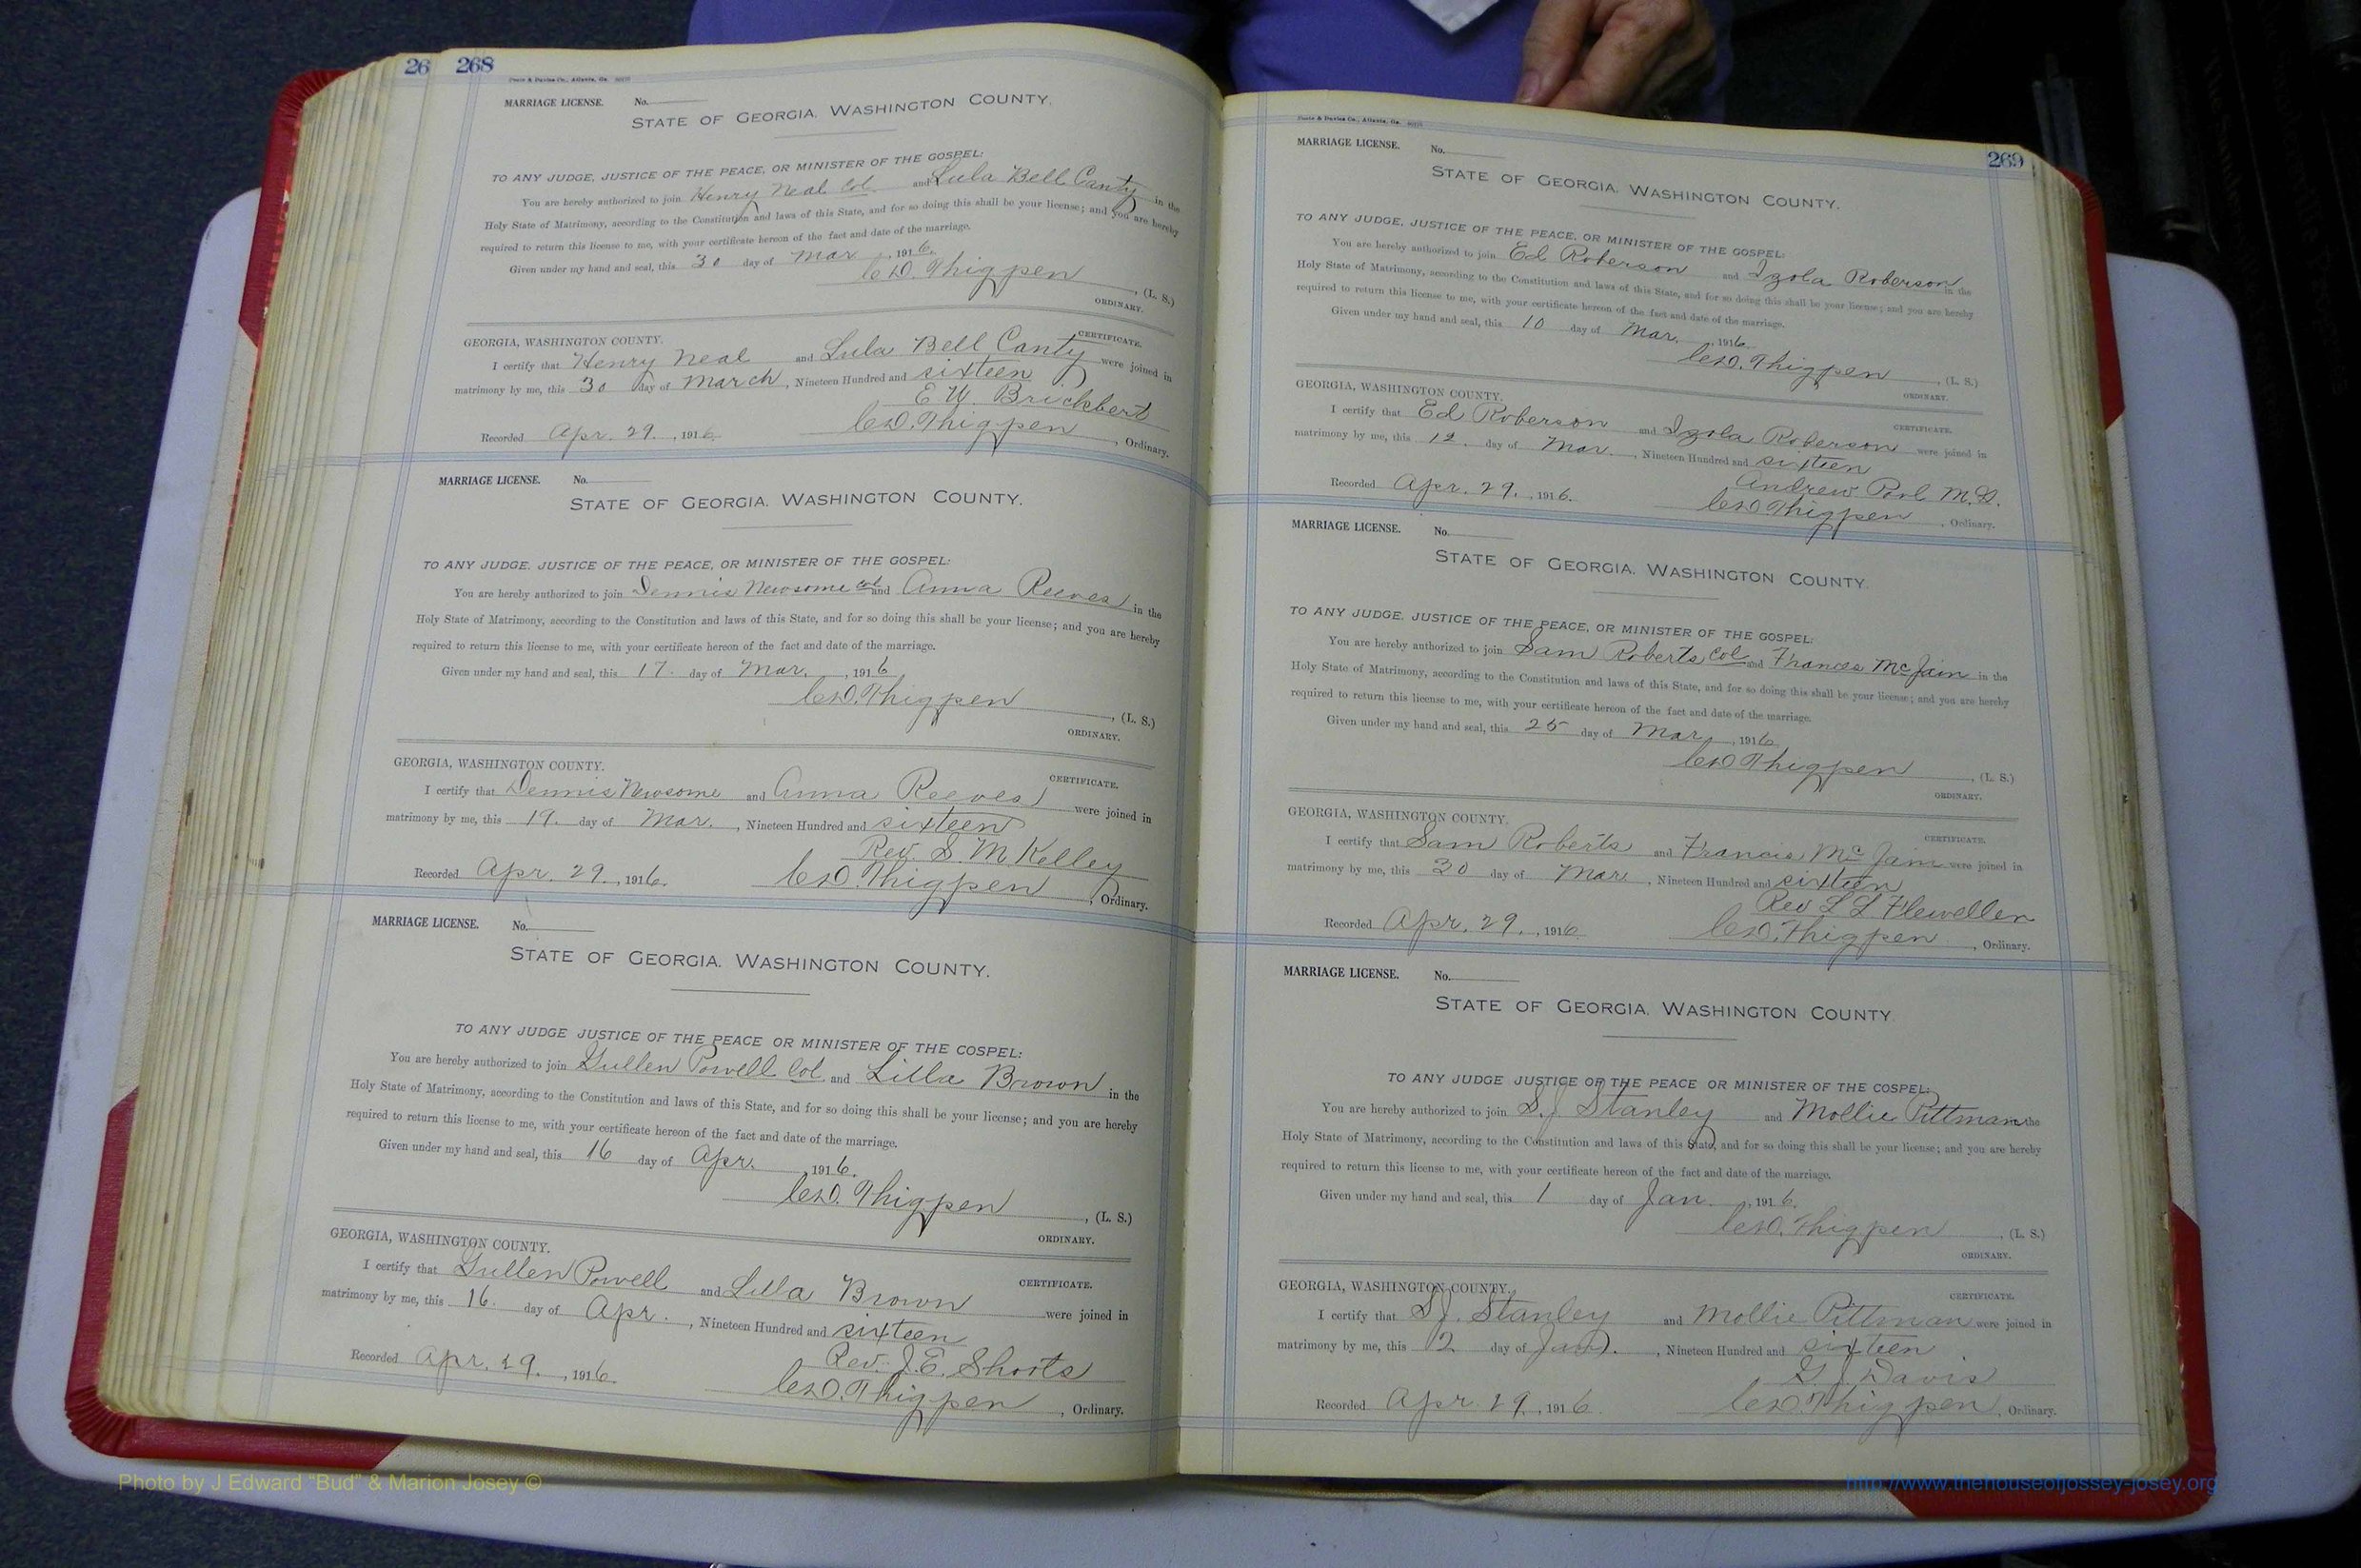 26 268
Foote & Davies Co., Atlanta, Ga.
MARRIAGE LICENSE. No.
STATE OF GEORGIA, WASHINGTON COUNTY.
TO ANY JUDGE, JUSTICE OF THE PEACE, OR MINISTER OF THE GOSPEL:
You are hereby authorized to join Henry Neal Col. and Lula Bell Canty in the
Holy State of Matrimony, according to the Constitution and laws of this State, and for so doing this shall be your license; and you are hereby
required to return this license to me, with your certificate hereon of the fact and date of the marriage.
Given under my hand and seal, this 30 day of Mar, 1916.
Thigpen, (L. S.)
ORDINARY.
CERTIFICATE.
GEORGIA, WASHINGTON COUNTY.
I certify that Henry Neal and Lula Bell Canty were joined in
matrimony by me, this 30 day of March, Nineteen Hundred and sixteen
E. W. Brickbert
Recorded Apr. 29., 1916. Thigpen, Ordinary.
MARRIAGE LICENSE. No.
STATE OF GEORGIA, WASHINGTON COUNTY.
TO ANY JUDGE, JUSTICE OF THE PEACE, OR MINISTER OF THE GOSPEL:
You are hereby authorized to join Dennis Newsome Col. and Anna Reeves in the
Holy State of Matrimony, according to the Constitution and laws of this State, and for so doing this shall be your license; and you are hereby
required to return this license to me, with your certificate hereon of the fact and date of the marriage.
Given under my hand and seal, this 17. day of Mar., 1916
Thigpen, (L. S.)
ORDINARY.
GEORGIA, WASHINGTON COUNTY.
CERTIFICATE.
I certify that Dennis Newsome and Anna Reeves were joined in
matrimony by me, this 19. day of Mar., Nineteen Hundred and sixteen
Rev. S. M. Kelley
Recorded Apr. 29., 1916. Thigpen, Ordinary.
MARRIAGE LICENSE. No.
STATE OF GEORGIA, WASHINGTON COUNTY.
TO ANY JUDGE JUSTICE OF THE PEACE OR MINISTER OF THE GOSPEL:
You are hereby authorized to join Gullen Powell Col. and Lilla Brown in the
Holy State of Matrimony, according to the Constitution and laws of this State, and for so doing this shall be your license; and you are hereby
required to return this license to me, with your certificate hereon of the fact and date of the marriage.
Given under my hand and seal, this 16 day of Apr., 1916.
Thigpen, (L. S.)
ORDINARY.
GEORGIA, WASHINGTON COUNTY.
CERTIFICATE.
I certify that Gullen Powell and Lilla Brown were joined in
matrimony by me, this 16. day of Apr., Nineteen Hundred and sixteen
Rev. J. E. Shorts
Recorded Apr. 29., 1916. Thigpen, Ordinary.
Foote & Davies Co., Atlanta, Ga.
269
MARRIAGE LICENSE. No.
STATE OF GEORGIA, WASHINGTON COUNTY.
TO ANY JUDGE, JUSTICE OF THE PEACE, OR MINISTER OF THE GOSPEL:
You are hereby authorized to join Ed Roberson and Izola Roberson in the
Holy State of Matrimony, according to the Constitution and laws of this State, and for so doing this shall be your license; and you are hereby
required to return this license to me, with your certificate hereon of the fact and date of the marriage.
Given under my hand and seal, this 10 day of Mar., 1916
Thigpen, (L. S.)
ORDINARY.
GEORGIA, WASHINGTON COUNTY.
CERTIFICATE.
I certify that Ed Roberson and Izola Roberson were joined in
matrimony by me, this 12. day of Mar., Nineteen Hundred and sixteen
Andrew M. G.
Recorded Apr. 29., 1916. Thigpen, Ordinary.
MARRIAGE LICENSE. No.
STATE OF GEORGIA, WASHINGTON COUNTY.
TO ANY JUDGE, JUSTICE OF THE PEACE, OR MINISTER OF THE GOSPEL:
You are hereby authorized to join Sam Roberts Col. and Frances McJain in the
Holy State of Matrimony, according to the Constitution and laws of this State, and for so doing this shall be your license; and you are hereby
required to return this license to me, with your certificate hereon of the fact and date of the marriage.
Given under my hand and seal, this 25 day of Mar, 1916
Thigpen, (L. S.)
ORDINARY.
GEORGIA, WASHINGTON COUNTY.
CERTIFICATE.
I certify that Sam Roberts and Francis McJain were joined in
matrimony by me, this 30 day of Mar, Nineteen Hundred and sixteen
Rev L L Flewellen
Recorded Apr. 29., 1916 Thigpen, Ordinary.
MARRIAGE LICENSE. No.
STATE OF GEORGIA, WASHINGTON COUNTY
TO ANY JUDGE JUSTICE OF THE PEACE OR MINISTER OF THE GOSPEL:
You are hereby authorized to join S. J. Stanley and Mollie Pittman the
Holy State of Matrimony, according to the Constitution and laws of this State, and for so doing this shall be your license; and you are hereby
required to return this license to me, with your certificate hereon of the fact and date of the marriage.
Given under my hand and seal, this 1 day of Jan., 1916.
Thigpen, (L. S.)
ORDINARY.
GEORGIA, WASHINGTON COUNTY.
CERTIFICATE.
I certify that S. J. Stanley and Mollie Pittman were joined in
matrimony by me, this 2 day of Jan., Nineteen Hundred and sixteen
G. J. Davis
Recorded Apr. 29., 1916. Thigpen, Ordinary.
Photo by J Edward "Bud" & Marion Josey ©
http://www.thehouseofjossey-josey.org